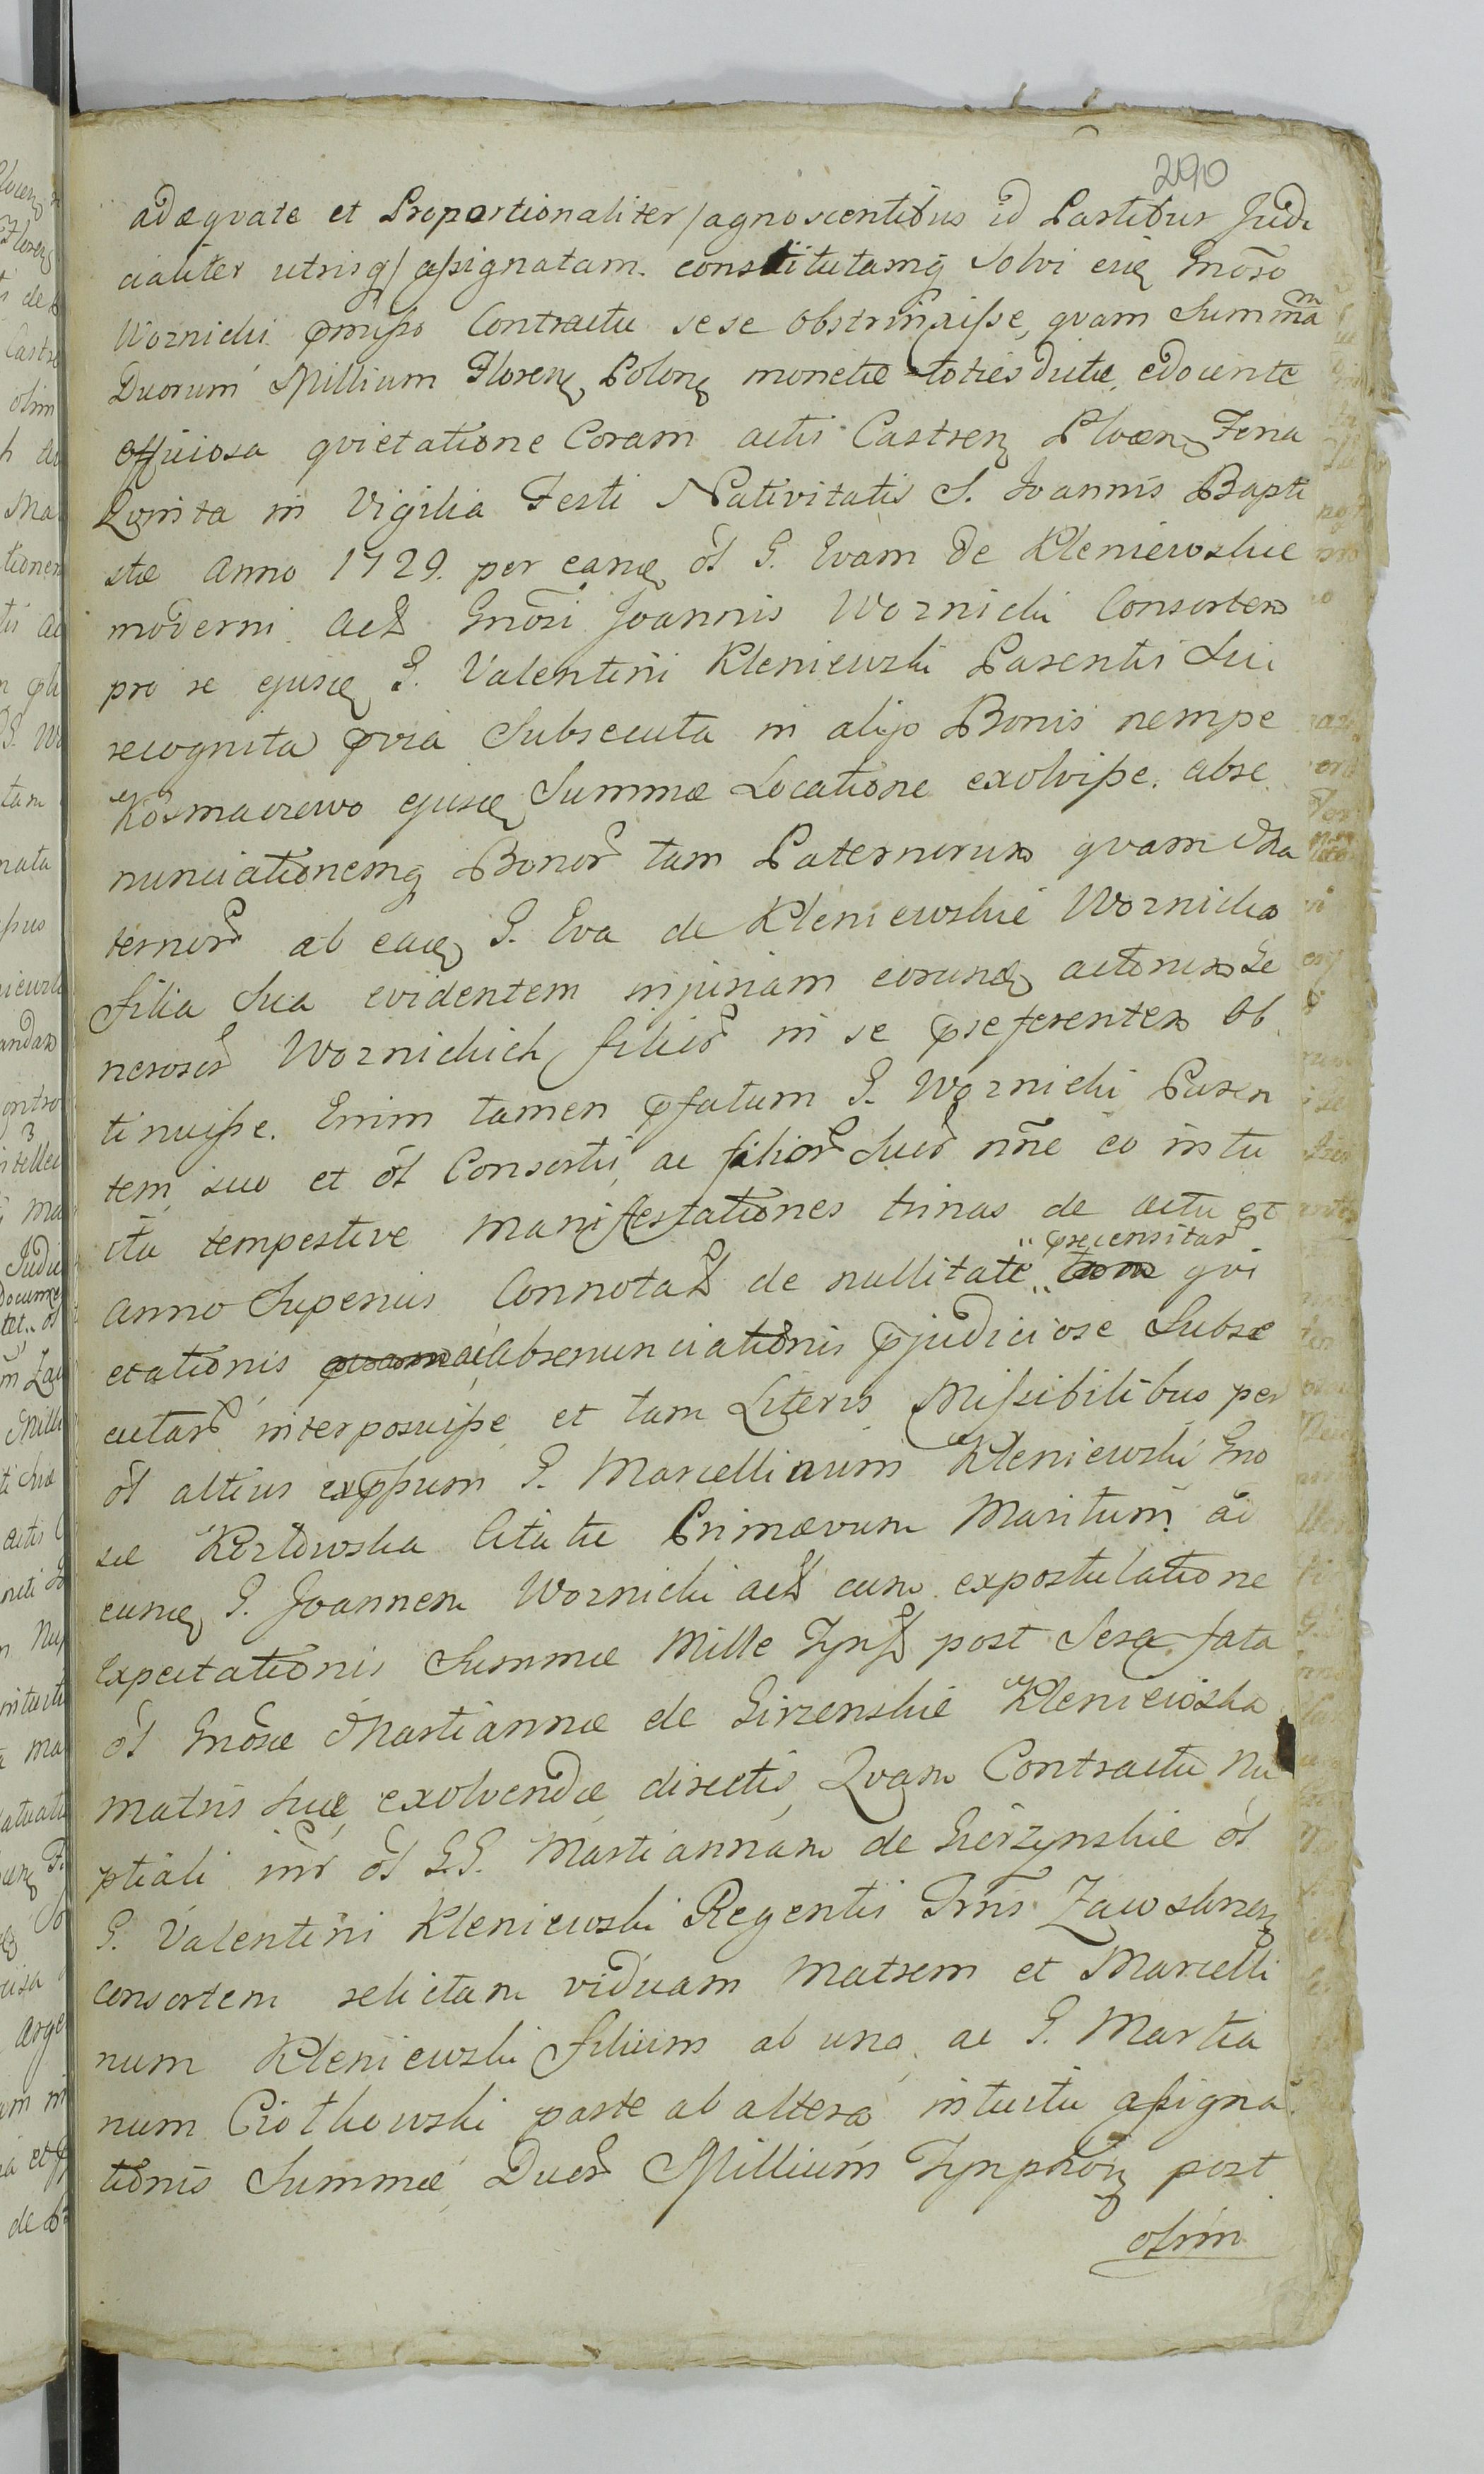 290
adæqvate et Proportionaliter / agnoscentibus id Partibus Judi
cialiter utrisq / assignatam constitutamq solvi eidē Gnōso
Woznicki pmisso Contractu sese obstrinxisse, qvam Summam
Duorum Millium Florenƺ Polonƺ monetæ toties dictæ, edocente
officiosa qvietatione Coram actis Castrenƺ Plocenƺ Feria
Qvinta in Vigilia Festi Nativitatis S. Joannis Bapti
stæ Anno 1729. per eandē ol G. Evam de Kleniewskie
moderni act Gnōsi Joannis Woznicki Consortem
pro re ejusdē G. Valentini Kleniewski Parentis Sui
recognita pvia Subsecuta in alijs Bonis nempe
Kosmaczewo ejusdē Summæ Locatione exolvisse. abre
nunciationemq Bonor tam Paternorum qvam Ma
ternor ab eadē G. Eva de Kleniewskie Woznicka
filia Sua evidentem injuriam eorundē actorum Ge
nerosor Woznickich filior in se pseferentem Ob
tinuisse. Enim tamen pfatum G. Woznicki Paren
tem suo et ol Consortis, ac filior Suor nne eo intu
itu tempestive manifestationes trinas de actu et
Anno Superius Connotat de nullitate precensitar qvi
etationis ac abrenunciationis pjudiciose Subse
cutar interposuisse et tam Literis Missibilibus per
ol altius expssum G. Marcellinum Kleniewski Gno
sæ Kozłowska Citatæ Primævum Maritum ad
eundē G. Joannem Woznicki act cum expostulatione
Expectationis Summæ Mille Tynf post Sera fata
ol Gnōsæ Martiannæ de Girzenskie Kleniewska
matris suæ exolvendæ directis, Qvam Contractu Nu
ptiali inr ol G.G. Martiannam de Gierzynskie ol
G. Valentini Kleniewski Regentis Trris Zawskrenƺ
consortem relictam viduam Matrem et Marcelli
num Kleniewski filium ab una, ac G. Martia
num Ciotkowski parte ab altera intuitu assigna
tionis Summæ Duor Millium Tynphonƺ post
olim